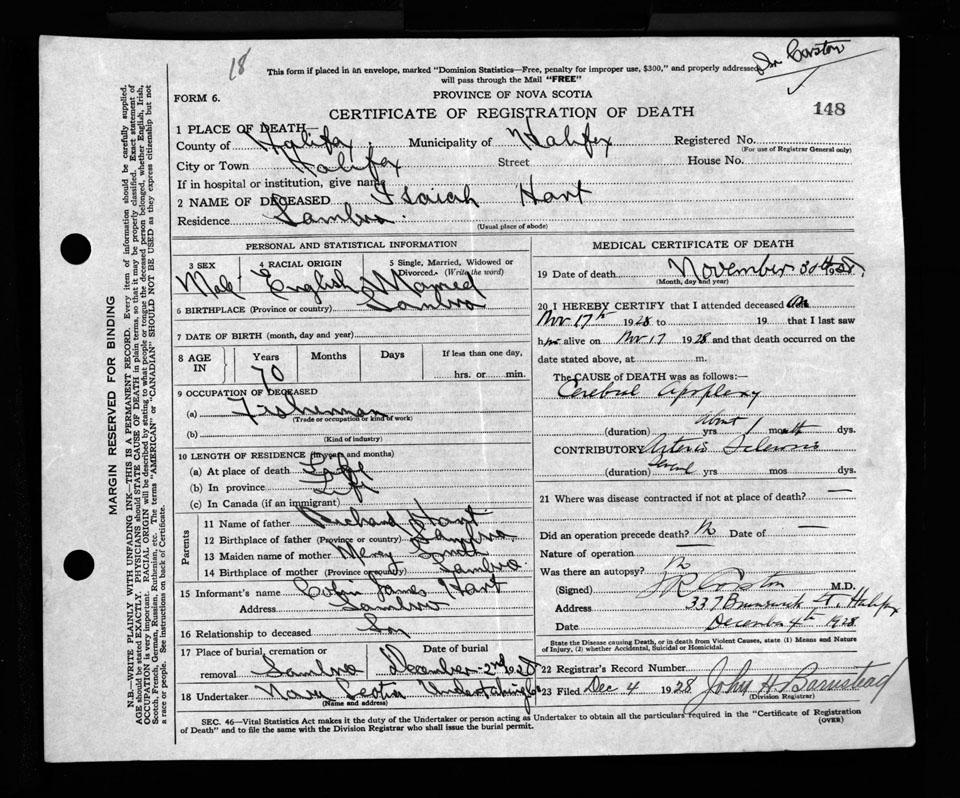 18
Dr Corston
This form if placed in an envelope, marked "Dominion Statistics—Free, penalty for improper use, $300," and properly addressed
will pass through the Mail "FREE"
FORM 6.
PROVINCE OF NOVA SCOTIA
CERTIFICATE OF REGISTRATION OF DEATH
148
1 PLACE OF DEATH—
County of Halifax Municipality of Halifax Registered No.
(For use of Registrar General only)
City or Town Halifax Street House No.
If in hospital or institution, give name
2 NAME OF DECEASED Isaiah Hart
Residence Sambro
(Usual place of abode)
PERSONAL AND STATISTICAL INFORMATION
3 SEX 4 RACIAL ORIGIN 5 Single, Married, Widowed or
Divorced. (Write the word)
Male English Married
6 BIRTHPLACE (Province or country) Sambro
7 DATE OF BIRTH (month, day and year)
8 AGE IN Years Months Days If less than one day,
70 hrs. or min.
9 OCCUPATION OF DECEASED
(a) Fisherman
(Trade or occupation or kind of work)
(b)
(Kind of industry)
10 LENGTH OF RESIDENCE (in years and months)
(a) At place of death Life
(b) In province Life
(c) In Canada (if an immigrant)
Parents
11 Name of father Richard Hart
12 Birthplace of father (Province or country) Sambro
13 Maiden name of mother Mary Smith
14 Birthplace of mother (Province or country) Sambro
15 Informant's name James Hart
Address Sambro
16 Relationship to deceased Son
17 Place of burial, cremation or removal Sambro
Date of burial
December 2nd 1928
18 Undertaker Nova Scotia Undertaking Co
(Name and address)
MEDICAL CERTIFICATE OF DEATH
19 Date of death November 30th 1928
(Month, day and year)
20 I HEREBY CERTIFY that I attended deceased on
Nov 17th 1928 to 19 that I last saw
him alive on Nov 17 1928 and that death occurred on the
date stated above, at m.
The CAUSE OF DEATH was as follows:—
Cerebral Apoplexy
(duration) yrs about 1 month dys.
CONTRIBUTORY Arterio Sclerosis
(duration) Several yrs mos dys.
21 Where was disease contracted if not at place of death? —
Did an operation precede death? No Date of —
Nature of operation —
Was there an autopsy? No
(Signed) J R Corston M.D.
Address 337 Brunswick St, Halifax
Date December 4th 1928
State the Disease causing Death, or in death from Violent Causes, state (1) Means and Nature
of Injury, (2) whether Accidental, Suicidal or Homicidal.
22 Registrar's Record Number
23 Filed Dec 4 1928 John H Barnstead
(Division Registrar)
SEC. 46—Vital Statistics Act makes it the duty of the Undertaker or person acting as Undertaker to obtain all the particulars required in the "Certificate of Registration
of Death" and to file the same with the Division Registrar who shall issue the burial permit.
(OVER)
MARGIN RESERVED FOR BINDING
N.B.—WRITE PLAINLY WITH UNFADING INK—THIS IS A PERMANENT RECORD. Every item of information should be carefully supplied.
AGE should be stated EXACTLY. PHYSICIANS should STATE CAUSE OF DEATH in plain terms, so that it may be properly classified. Exact statement of
OCCUPATION is very important. RACIAL ORIGIN will be described by stating to what people or tongue the deceased person belonged, whether English, Irish,
Scotch, French, German, Russian, Ruthenian, etc. The terms "AMERICAN" or "CANADIAN" SHOULD NOT BE USED as they express citizenship but not
a race or people. See instructions on back of Certificate.